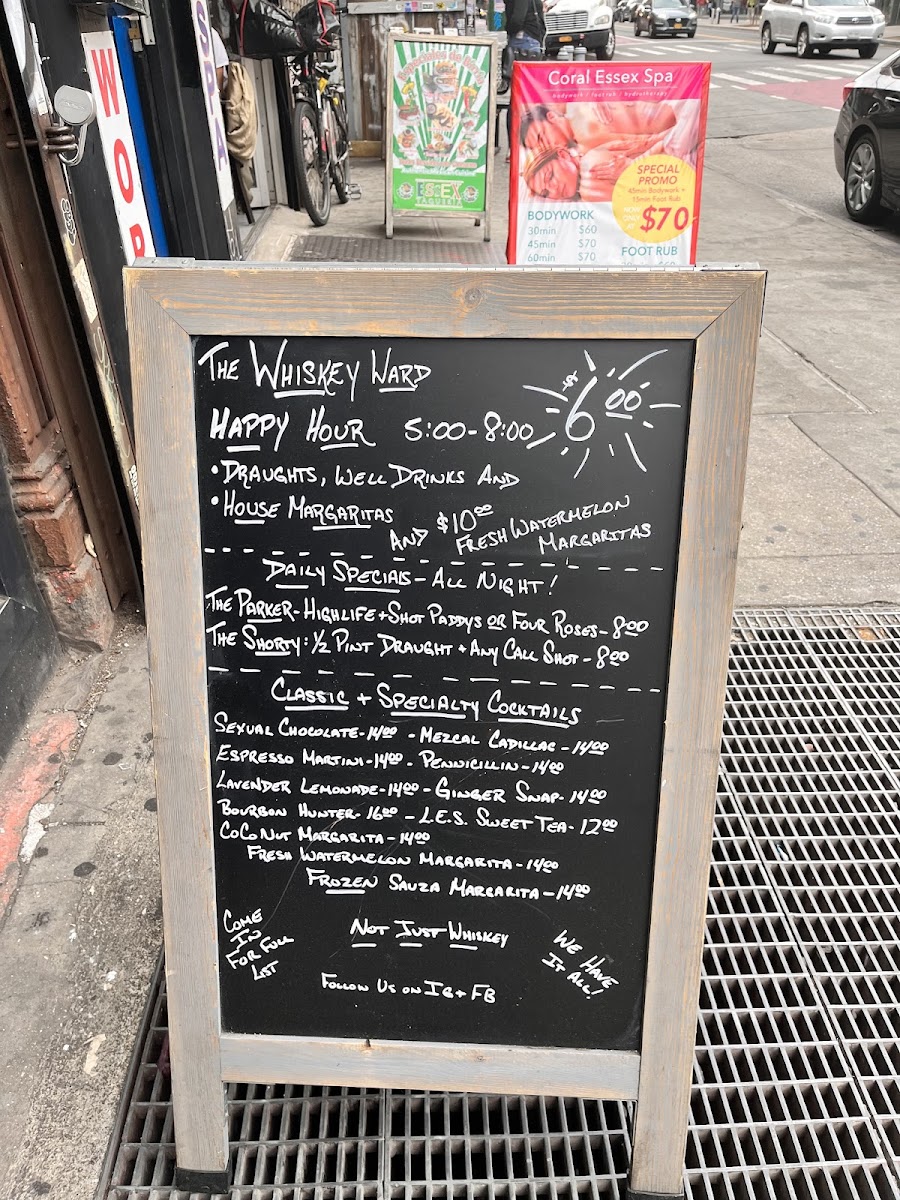 WOR
SPA
ESSEX
TAQUERIA
Coral Essex Spa
bodywork / foot rub / hydrotherapy
SPECIAL
PROMO
45min Bodywork +
15min Foot Rub
NOW
ONLY
AT $70
BODYWORK
30min $60
45min $70
60min $70
FOOT RUB
THE WHISKEY WARD
$6.00
HAPPY HOUR 5:00-8:00
• DRAUGHTS, WELL DRINKS AND
• HOUSE MARGARITAS
AND $10.00 FRESH WATERMELON
MARGARITAS
DAILY SPECIALS - ALL NIGHT!
THE PARKER - HIGHLIFE + SHOT PADDYS OR FOUR ROSES - 8.00
THE SHORTY: 1/2 PINT DRAUGHT + ANY CALL SHOT - 8.00
CLASSIC + SPECIALTY COCKTAILS
SEXUAL CHOCOLATE - 14.00 - MEZCAL CADILLAC - 14.00
ESPRESSO MARTINI - 14.00 - PENNICILLIN - 14.00
LAVENDER LEMONADE - 14.00 - GINGER SNAP - 14.00
BOURBON HUNTER - 16.00 - L.E.S. SWEET TEA - 12.00
COCONUT MARGARITA - 14.00
FRESH WATERMELON MARGARITA - 14.00
FROZEN SAUZA MARGARITA - 14.00
COME
IN
FOR FULL
LIST
NOT JUST WHISKEY
WE HAVE
IT ALL!
FOLLOW US ON IG + FB